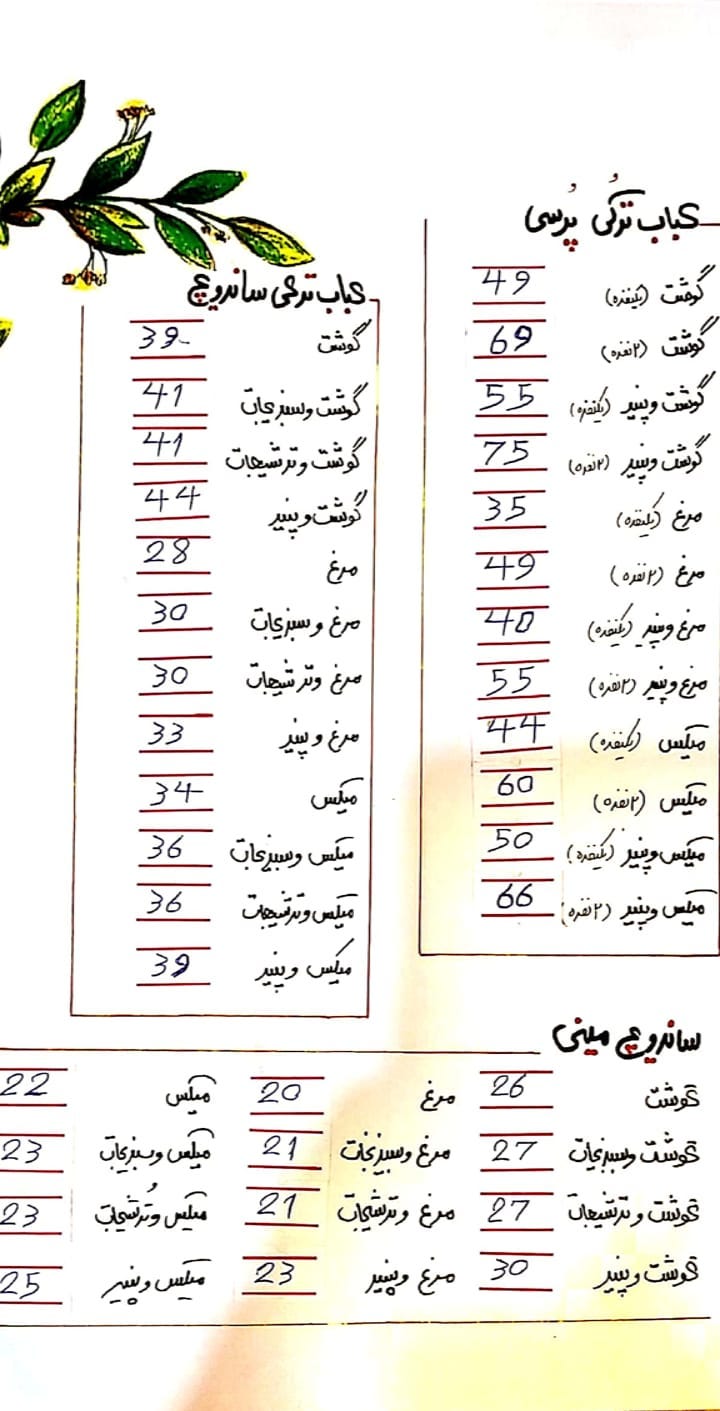 کباب ترکُی پُرسی
گوشت (یکنفره) 49
گوشت (۲نفره) 69
گوشت و پنیر (یکنفره) 55
گوشت و پنیر (۲نفره) 75
مرغ (یکنفره) 35
مرغ (۲نفره) 49
مرغ و پنیر (یکنفره) 40
مرغ و پنیر (۲نفره) 55
میکس (یکنفره) 44
میکس (۲نفره) 60
میکس و پنیر (یکنفره) 50
میکس و پنیر (۲نفره) 66
کباب ترکی ساندویچ
گوشت 39
گوشت و سبزیجات 41
گوشت و ترشیجات 41
گوشت و پنیر 44
مرغ 28
مرغ و سبزیجات 30
مرغ و ترشیجات 30
مرغ و پنیر 33
میکس 34
میکس و سبزیجات 36
میکس و ترشیجات 36
میکس و پنیر 39
ساندویچ مینی
گوشت 26 مرغ 20 میکس 22
گوشت و سبزیجات 27 مرغ و سبزیجات 21 میکس و سبزیجات 23
گوشت و ترشیجات 27 مرغ و ترشیجات 21 میکس و تُرشیجات 23
گوشت و پنیر 30 مرغ و پنیر 23 میکس و پنیر 25